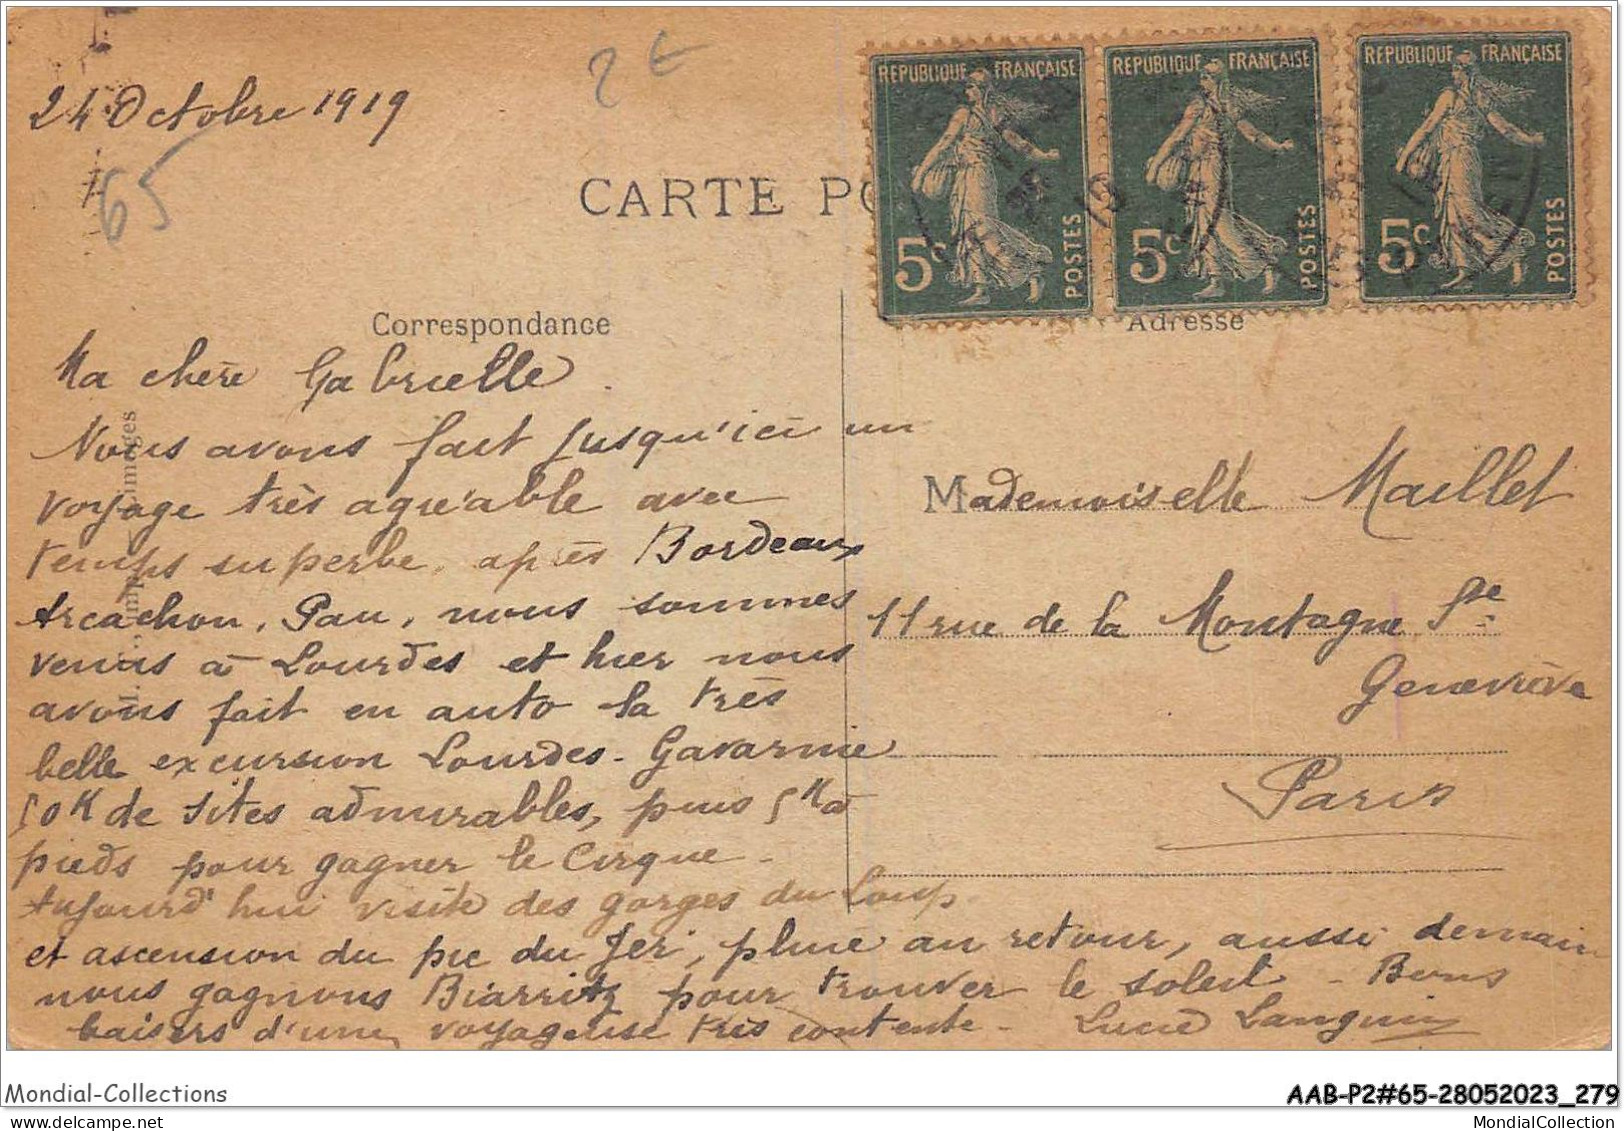 24 Octobre 1919
2 €
65
CARTE PO
REPUBLIQUE FRANÇAISE
5c
POSTES
REPUBLIQUE FRANÇAISE
5c
POSTES
REPUBLIQUE FRANÇAISE
5c
POSTES
Correspondance
Adresse
Ma chère Gabrielle.
Nous avons fait jusqu'ici un
voyage très agréable avec
temps superbe, après Bordeaux
Arcachon, Pau, nous sommes
venus à Lourdes et hier nous
avons fait en auto la très
belle excursion Lourdes-Gavarnie
50K de sites admirables, puis 5K à
pieds pour gagner le Cirque -
Aujourd'hui visite des gorges du Loup
et ascension du pic du Jer, pluie au retour, aussi demain
nous gagnons Biarritz pour trouver le soleil - Bons
baisers d'une voyageuse très contente - Lucie Languin
Mademoiselle Maillet
11 rue de la Montagne Ste
Geneviève
Paris
Limoges
Mondial-Collections
AAB-P2#65-28052023_279
MondialCollection